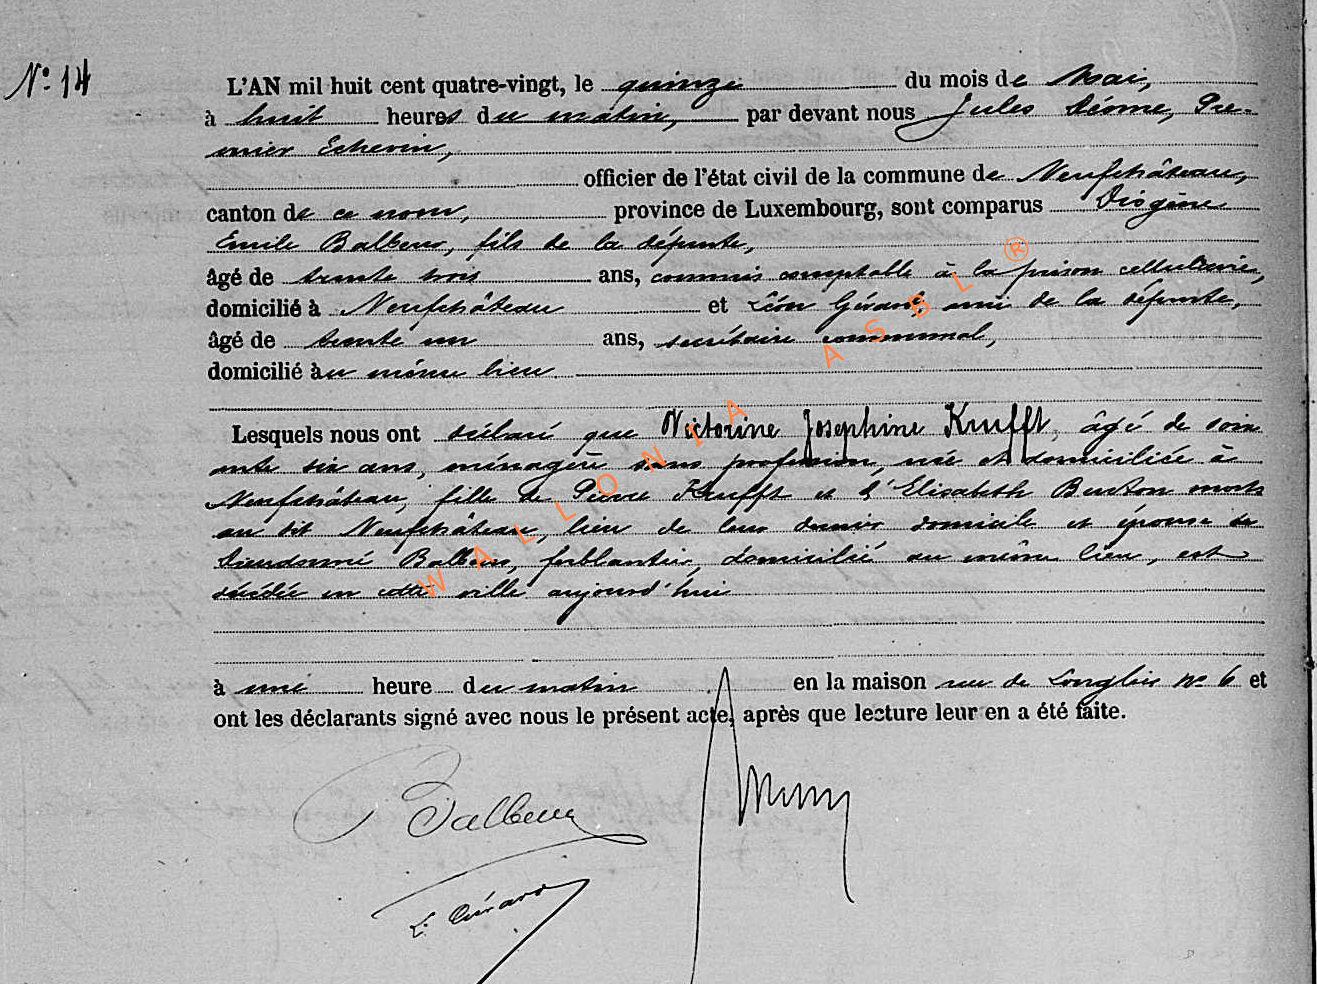 N° 14
L'AN mil huit cent quatre-vingt, le quinze du mois de Mai,
à huit heures du matin, par devant nous Jules Déome, Pre-
mier Echevin,
officier de l'état civil de la commune de Neufchâteau,
canton de ce nom, province de Luxembourg, sont comparus Diogène
Emile Balbeur, fils de la défunte,
âgé de trente trois ans, commis comptable à la prison cellulaire,
domicilié à Neufchâteau et Léon Gérard, ami de la défunte,
âgé de trente un ans, secrétaire communal,
domicilié au même lieu
Lesquels nous ont déclaré que Victorine Josephine Krufft, âgé de soix
ante six ans, ménagère sans profession, née et domiciliée à
Neufchâteau, fille de Pierre Krufft et d'Elisabeth Burton morts
au dit Neufchâteau, lieu de leur dernier domicile et épouse de
Dieudonné Balbeur, ferblantier, domicilié au même lieu, est
décédée en cette ville aujourd'hui
à une heure du matin en la maison rue de Longlier N° 6 et
ont les déclarants signé avec nous le présent acte, après que lecture leur en a été faite.
Balbeur
L. Gérard
WALLONIA ASBL ®